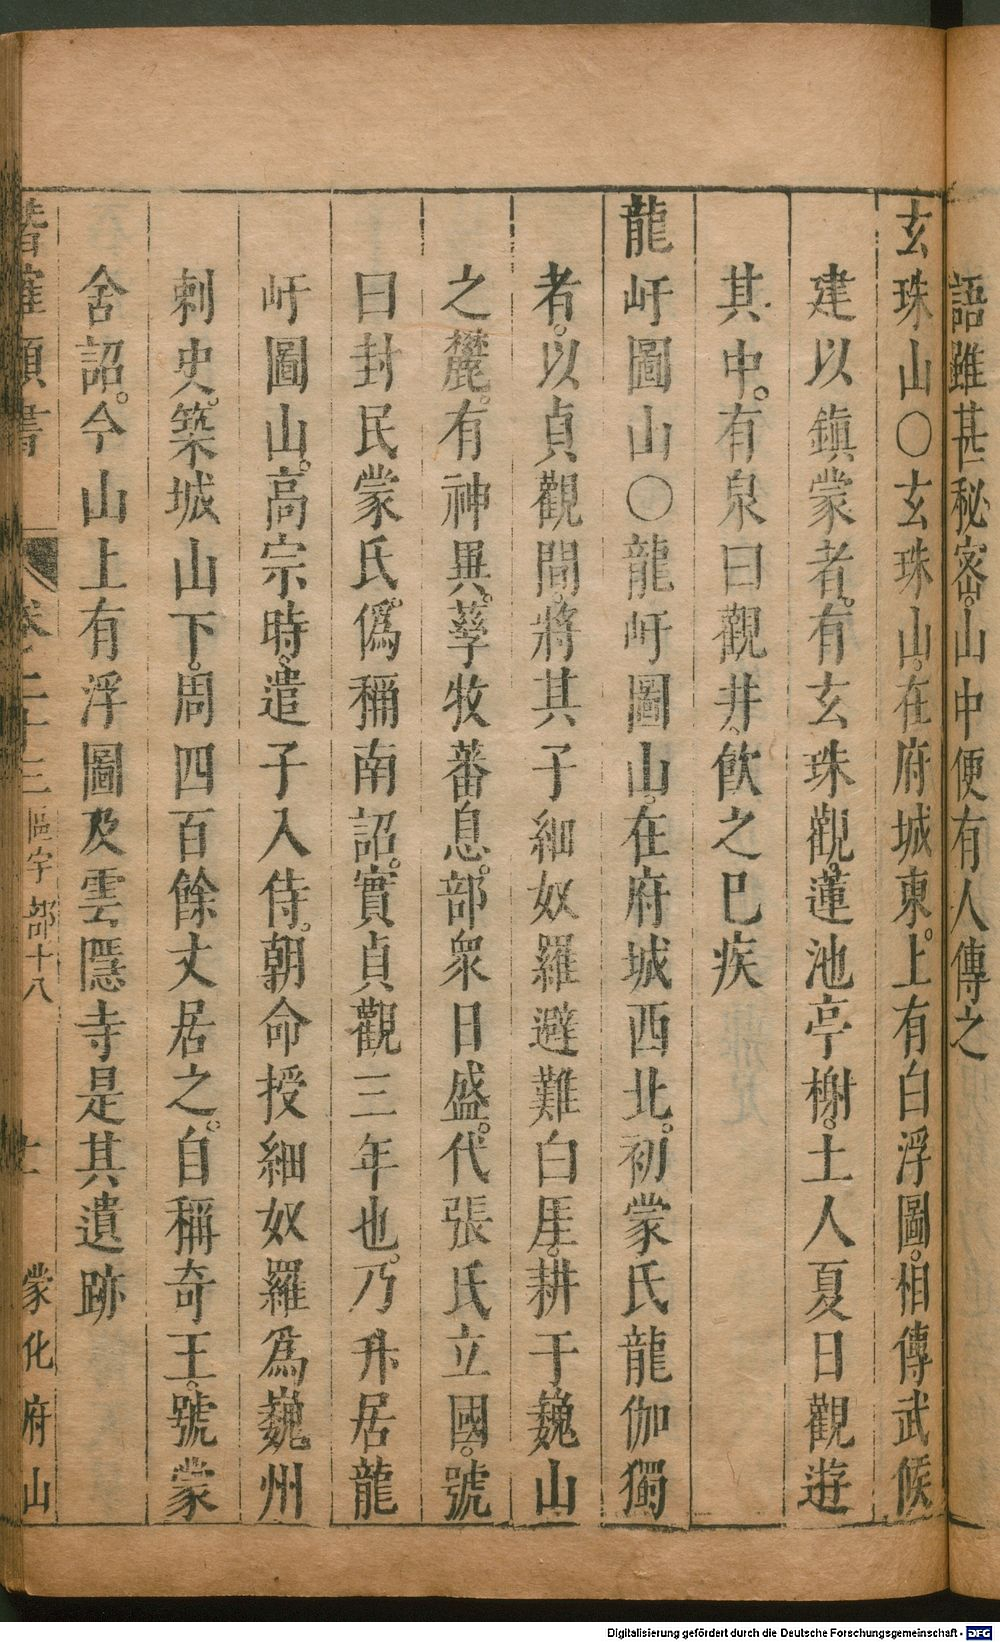 語雖甚秘密。山中便有人傳之
玄珠山○玄珠山。在府城東。上有白浮圖。相傳武候
建以鎮蒙者。有玄珠觀。蓮池亭榭。土人夏日觀遊
其中。有泉曰觀井。飲之已疾
龍𡵆圖山○龍𡵆圖山。在府城西北。初蒙氏龍伽獨
者。以貞觀間。將其子細奴羅避難白厓。耕于巍山
之麓。有神異。孳牧蕃息。部衆日盛。代張氏立國。號
曰封民蒙氏。僞稱南詔。實貞觀三年也。乃升居龍
𡵆圖山。高宗時。遣子入侍。朝命授細奴羅爲巍州
刺史。築城山下。周四百餘丈居之。自稱奇王。號蒙
舍詔。今山上有浮圖及雲隱寺是其遺跡
潛確類書 卷之二十三 區宇部十八 蒙化府山
Digitalisierung gefördert durch die Deutsche Forschungsgemeinschaft - DFG